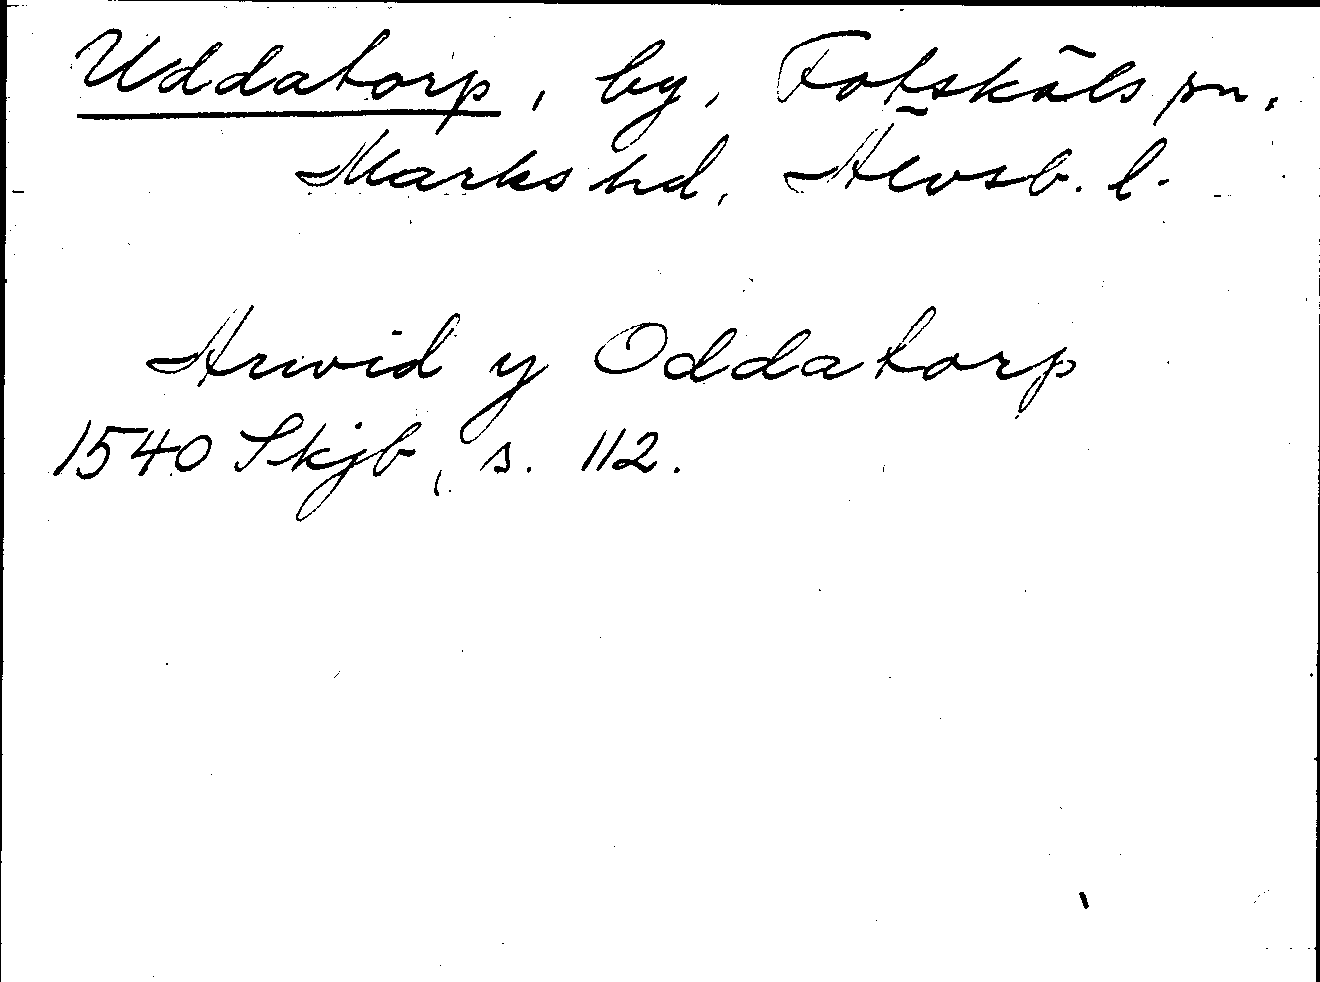 Uddatorp, by, Fotskäls sn,
Marks hd, Älvsb. l.
Arwid y Oddatorp
1540 Skjb, s. 112.